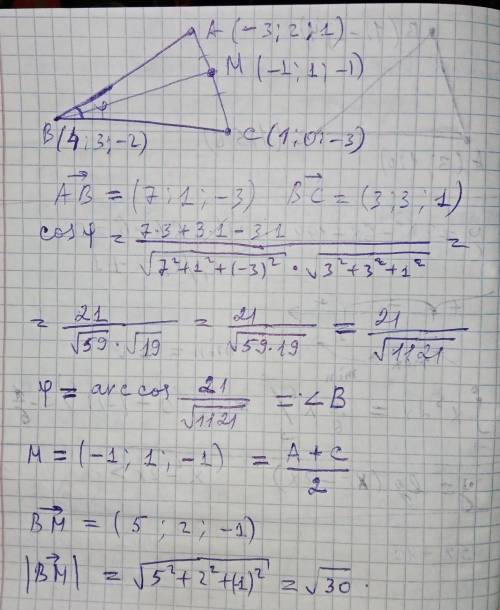 A (-3; 2; 1)
M (-1; 1; -1)
B(4; 3; -2)
C (1; 0; -3)
AB = (7; 1; -3) BC = (3; 3; 1)
cos φ = (7·3+3·1-3·1)/(√(7²+1²+(-3)²) · √(3²+3²+1²)) =
= 21/(√59 · √19) = 21/√(59·19) = 21/√1121
φ = arccos 21/√1121 = ∠B
M = (-1; 1; -1) = (A+C)/2
BM = (5; 2; -1)
|BM| = √(5²+2²+(1)²) = √30.